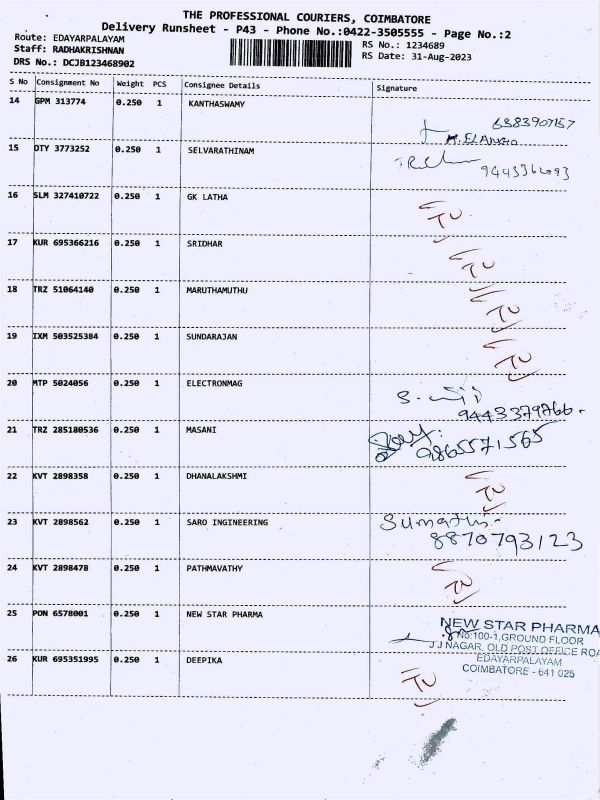 THE PROFESSIONAL COURIERS, COIMBATORE
Delivery Runsheet - P43 - Phone No.:0422-3505555 - Page No.:2
Route: EDAYARPALAYAM
RS No.: 1234689
Staff: RADHAKRISHNAN
RS Date: 31-Aug-2023
DRS No.: DCJB123468902
S No Consignment No Weight PCS Consignee Details Signature
14 GPM 313774 0.250 1 KANTHASWAMY
6383907157
K.ELANGO
15 OTY 3773252 0.250 1 SELVARATHINAM
16 SLM 327410722 0.250 1 GK LATHA
TU
17 KUR 695366216 0.250 1 SRIDHAR
TU
18 TRZ 51064140 0.250 1 MARUTHAMUTHU
TU
19 IXM 503525384 0.250 1 SUNDARAJAN
TU
20 MTP 5024056 0.250 1 ELECTRONMAG
9443379766
21 TRZ 285180536 0.250 1 MASANI
9865571565
22 KVT 2898358 0.250 1 DHANALAKSHMI
TU
23 KVT 2898562 0.250 1 SARO INGINEERING
Sumathi
8870793123
24 KVT 2898478 0.250 1 PATHMAVATHY
TU
25 PON 6578001 0.250 1 NEW STAR PHARMA
NEW STAR PHARMA
No:100-1,GROUND FLOOR
J J NAGAR, OLD POST OFFICE ROA
EDAYARPALAYAM
COIMBATORE - 641 025
26 KUR 695351995 0.250 1 DEEPIKA
TU